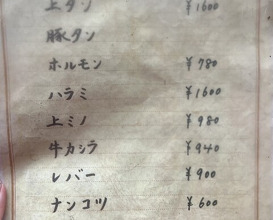 上タン ¥1600
豚タン
ホルモン ¥780
ハラミ ¥1600
上ミノ ¥980
牛カシラ ¥940
レバー ¥900
ナンコツ ¥600